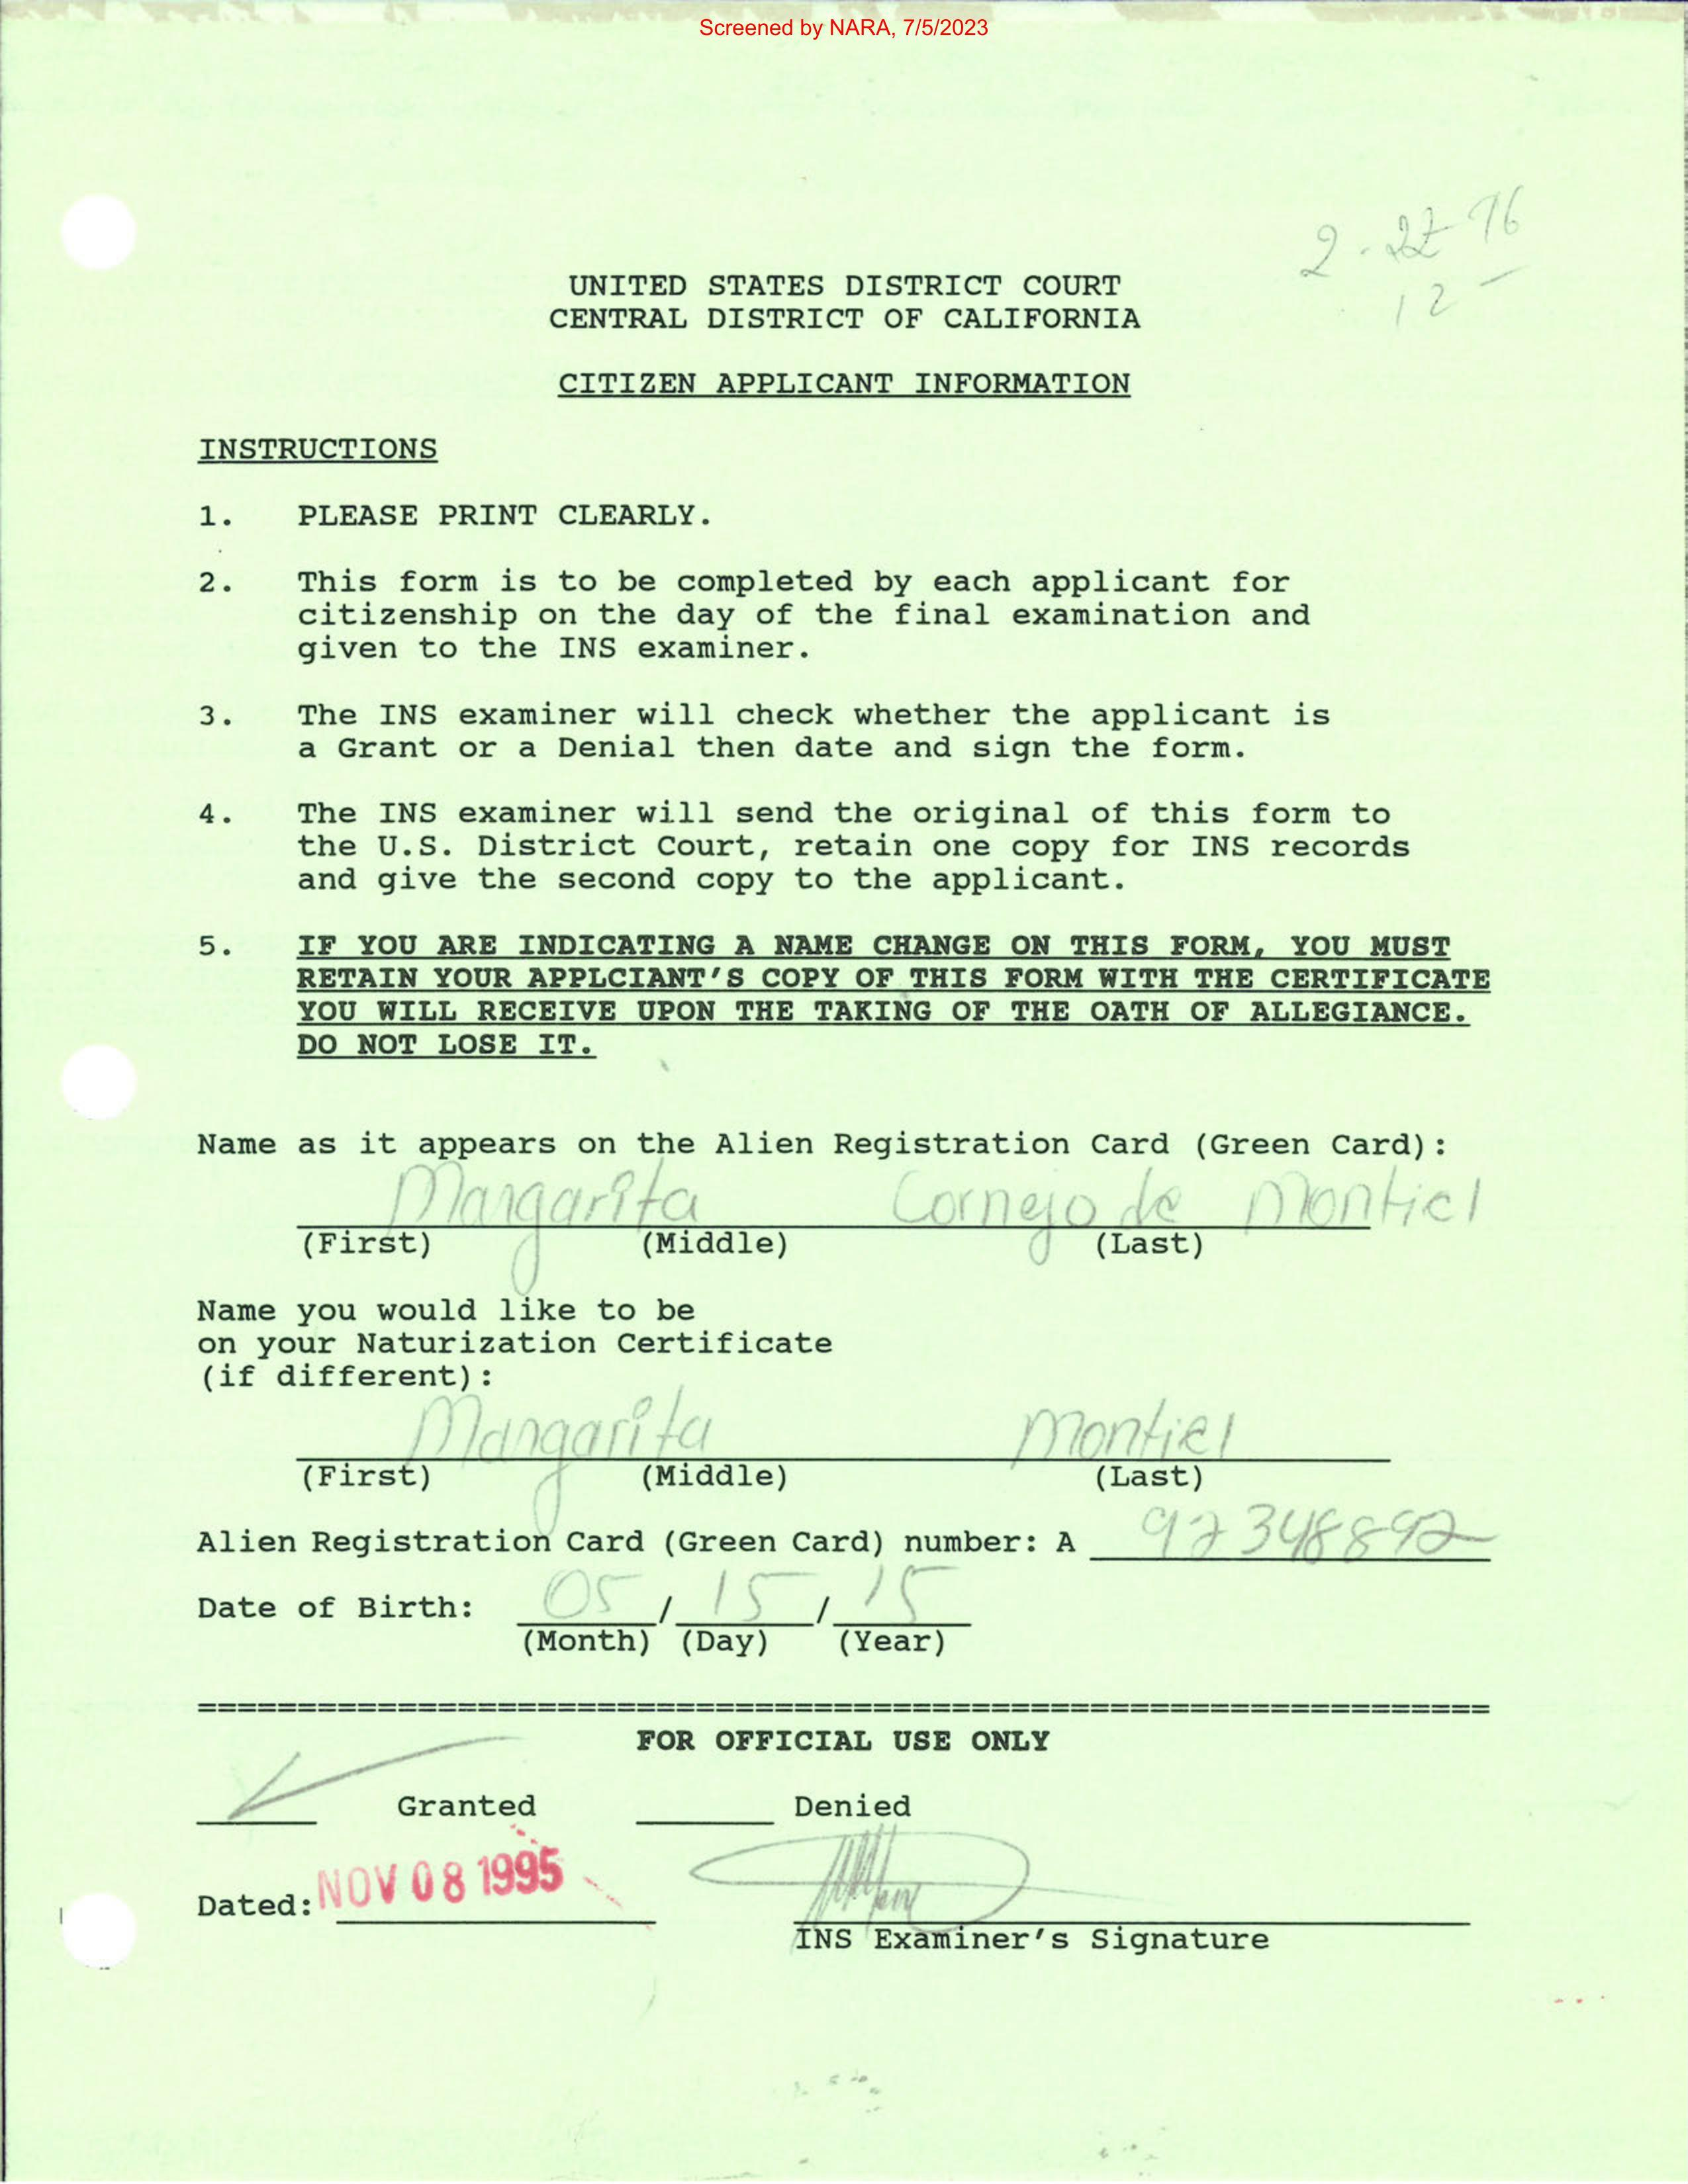 Screened by NARA, 7/5/2023
2-22-96
12
UNITED STATES DISTRICT COURT
CENTRAL DISTRICT OF CALIFORNIA
CITIZEN APPLICANT INFORMATION
INSTRUCTIONS
1. PLEASE PRINT CLEARLY.
2. This form is to be completed by each applicant for
citizenship on the day of the final examination and
given to the INS examiner.
3. The INS examiner will check whether the applicant is
a Grant or a Denial then date and sign the form.
4. The INS examiner will send the original of this form to
the U.S. District Court, retain one copy for INS records
and give the second copy to the applicant.
5. IF YOU ARE INDICATING A NAME CHANGE ON THIS FORM, YOU MUST
RETAIN YOUR APPLCIANT'S COPY OF THIS FORM WITH THE CERTIFICATE
YOU WILL RECEIVE UPON THE TAKING OF THE OATH OF ALLEGIANCE.
DO NOT LOSE IT.
Name as it appears on the Alien Registration Card (Green Card):
Margarita Cornejo de Montiel
(First) (Middle) (Last)
Name you would like to be
on your Naturization Certificate
(if different):
Margarita Montiel
(First) (Middle) (Last)
Alien Registration Card (Green Card) number: A 92348892
Date of Birth: 05 / 15 / 15
(Month) (Day) (Year)
FOR OFFICIAL USE ONLY
Granted Denied
Dated: NOV 08 1995
INS Examiner's Signature